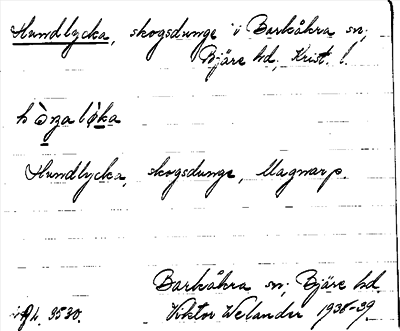 Hundlycka, skogsdunge i Barkåkra sn;
Bjäre hd, Krist. l.
Hundlycka, skogsdunge, Magnarp.
Barkåkra sn; Bjäre hd.
Viktor Welander 1938-39.